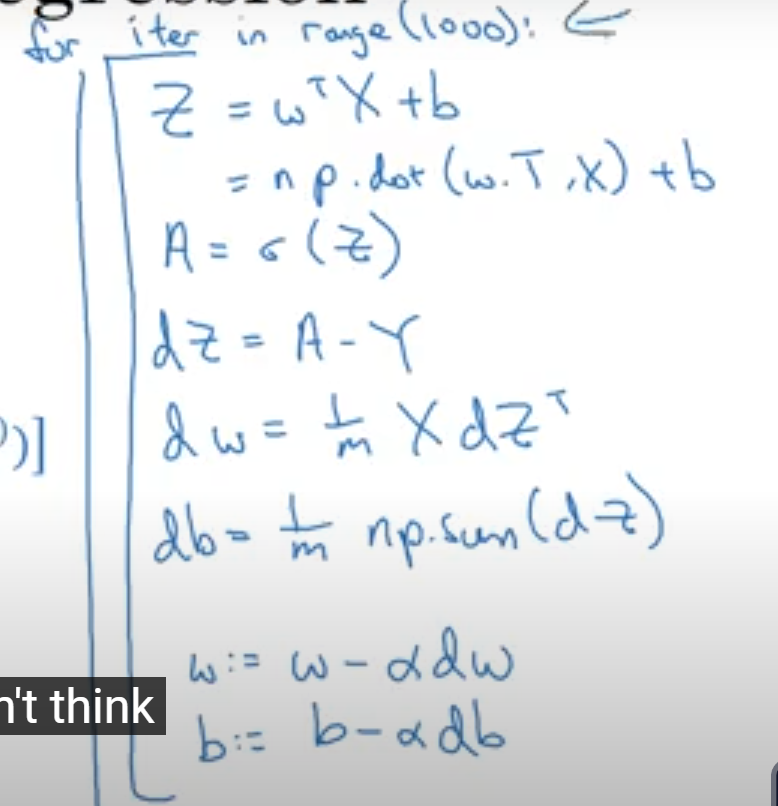 for iter in range(1000): ←
Z = wᵀX + b
= np.dot(w.T, X) + b
A = σ(Z)
dZ = A - Y
dw = 1/m X dZᵀ
)]
db = 1/m np.sum(dZ)
w := w - αdw
n't think
b := b - αdb